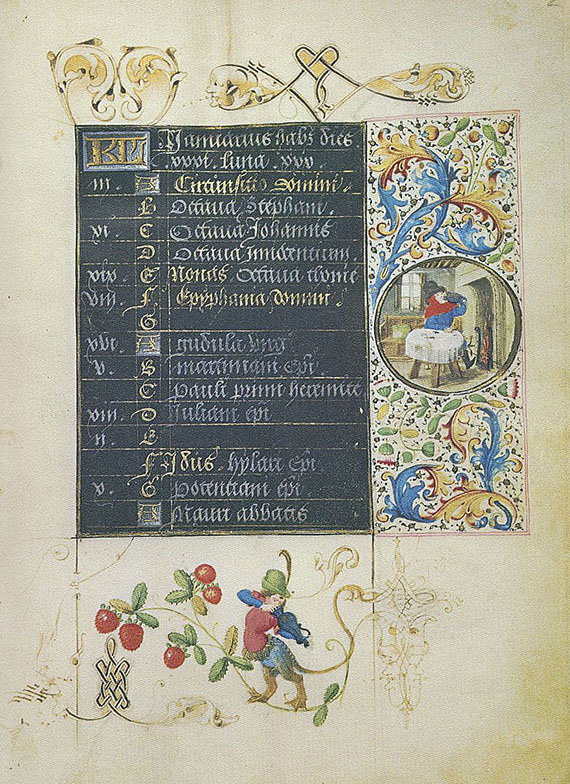 KL Januarius habz dies
xxxi. luna. xxx.
iii. A Circunsio domini.
B Octaua Stephani.
xi. C Octaua Johannis
D Octaua Innocentium
xix E Nonas Octaua
viii. F Epyphania domini.
G
xvi. A Gudula virg
v. B Marciani epi.
C Pauli primi heremite
xiii. D Juliani epi
ii. E
F Idus. hylarii epi
x. G epi.
A Mauri abbatis